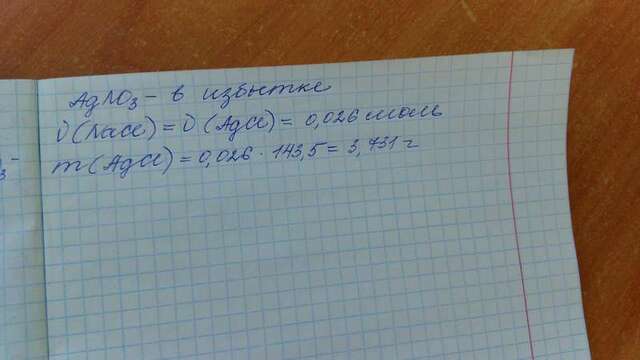 AgNO₃ - в избытке
ν(NaCl) = ν(AgCl) = 0,026 моль
m(AgCl) = 0,026 · 143,5 = 3,731 г